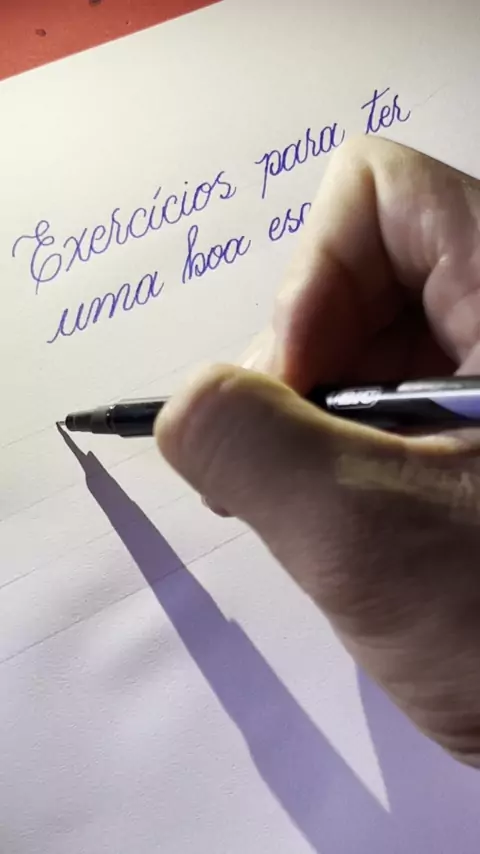 Exercícios para ter
uma boa